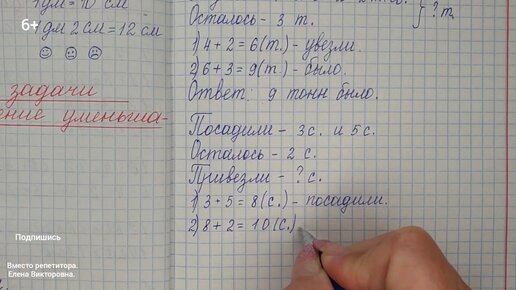 1 дм = 10 см
1 дм 2 см = 12 см
6+
задачи
ение уменьша-
Осталось - 3 т.
} ? т.
1) 4 + 2 = 6 (т.) - увезли.
2) 6 + 3 = 9 (т.) - было.
Ответ: 9 тонн было.
Посадили - 3 с. и 5 с.
Осталось - 2 с.
Привезли - ? с.
1) 3 + 5 = 8 (с.) - посадили.
2) 8 + 2 = 10 (с.)
Подпишись
Вместо репетитора.
Елена Викторовна.